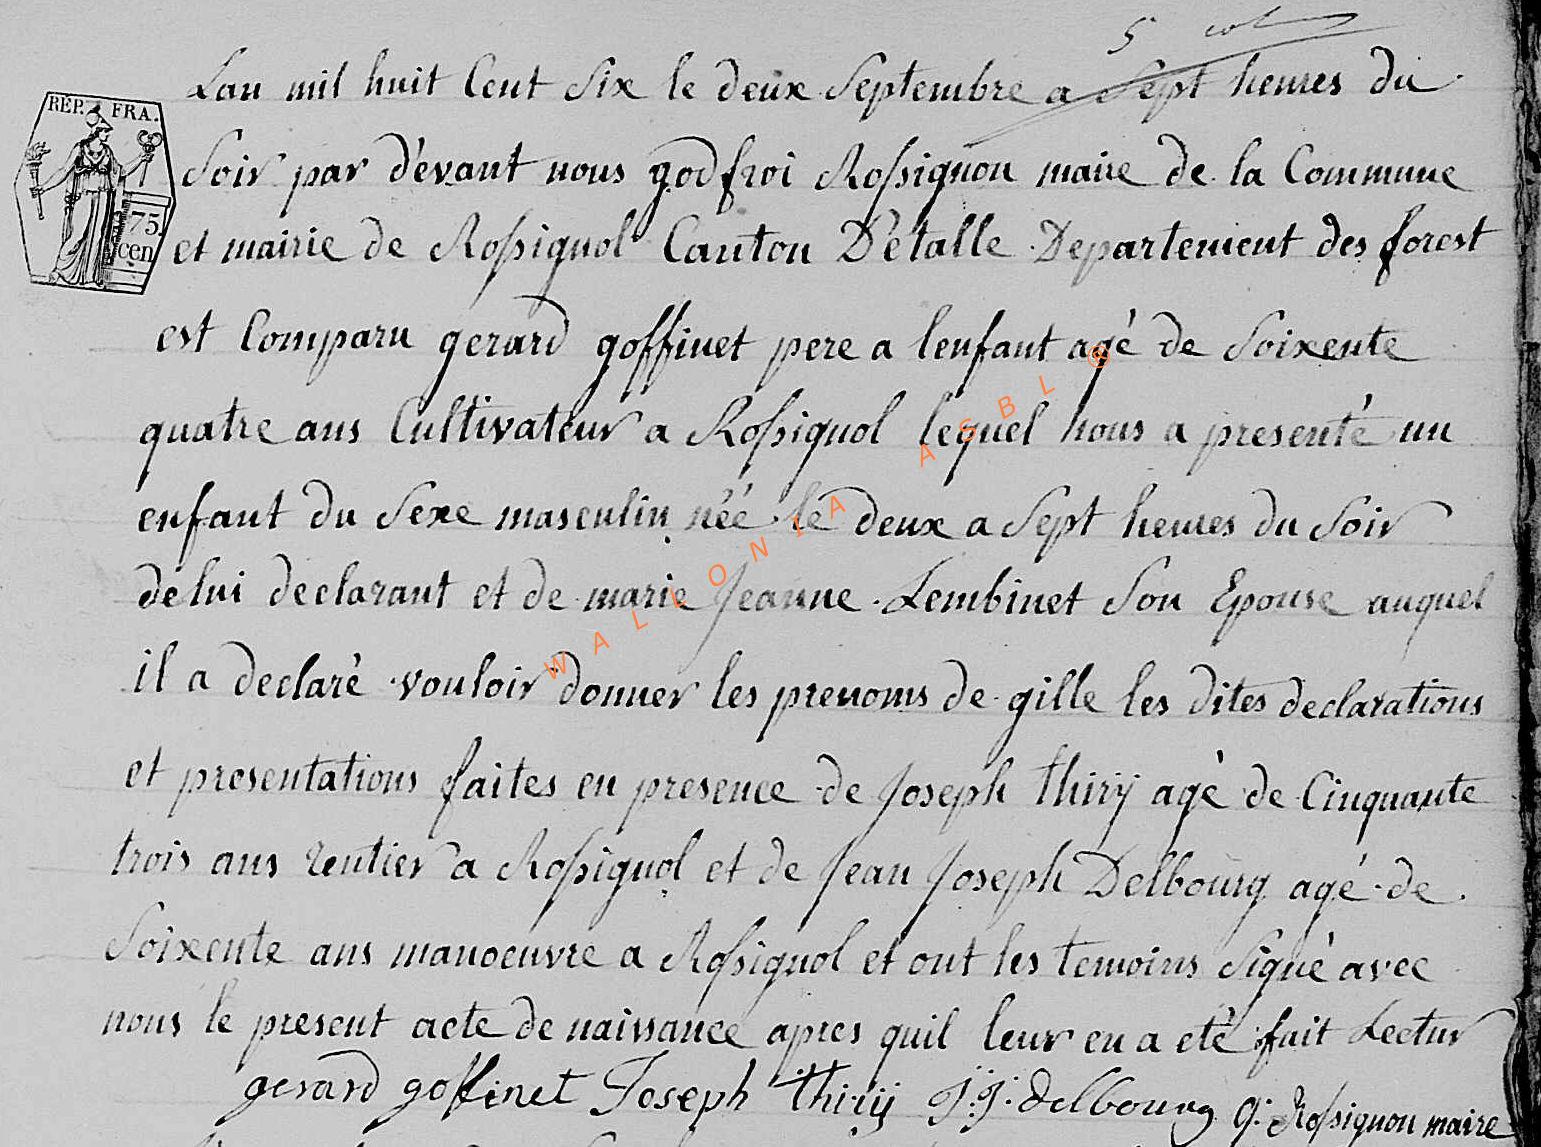 5
Lan mil huit Cent Six le deux Septembre a Sept heures du
REP. FRA.
Soir par dévant nous godfroi Rossignon maire de la Commune
75.
cen
et mairie de Rossignol Canton D'étalle Departement des forest
est Comparu gerard goffinet pere a lenfant agé de Soixente
quatre ans Cultivateur a Rossignol lequel nous a presenté un
enfant du Sexe masculin néé le deux a Sept heures du Soir
de lui declarant et de marie Jeanne Lembinet Son Epouse auquel
il a declaré vouloir donner les prenoms de gille les dites declarations
et presentations faites en presence de Joseph thirÿ agé de Cinquante
trois ans rentier a Rossignol et de Jean Joseph Delbourg agé de
Soixente ans manoeuvre a Rossignol et ont les temoins Signé avec
nous le present acte de naissance apres quil leur en a eté fait Lectur
gerard goffinet Joseph thirÿ J: J: delbourg G: Rossignon maire
WALLONIA ASBL ®